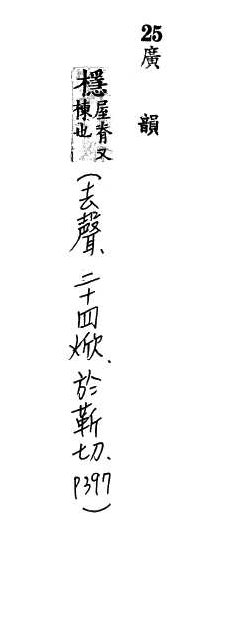 25廣韻
櫽屋脊又棟也(去聲、二十四焮、於靳切、P397)